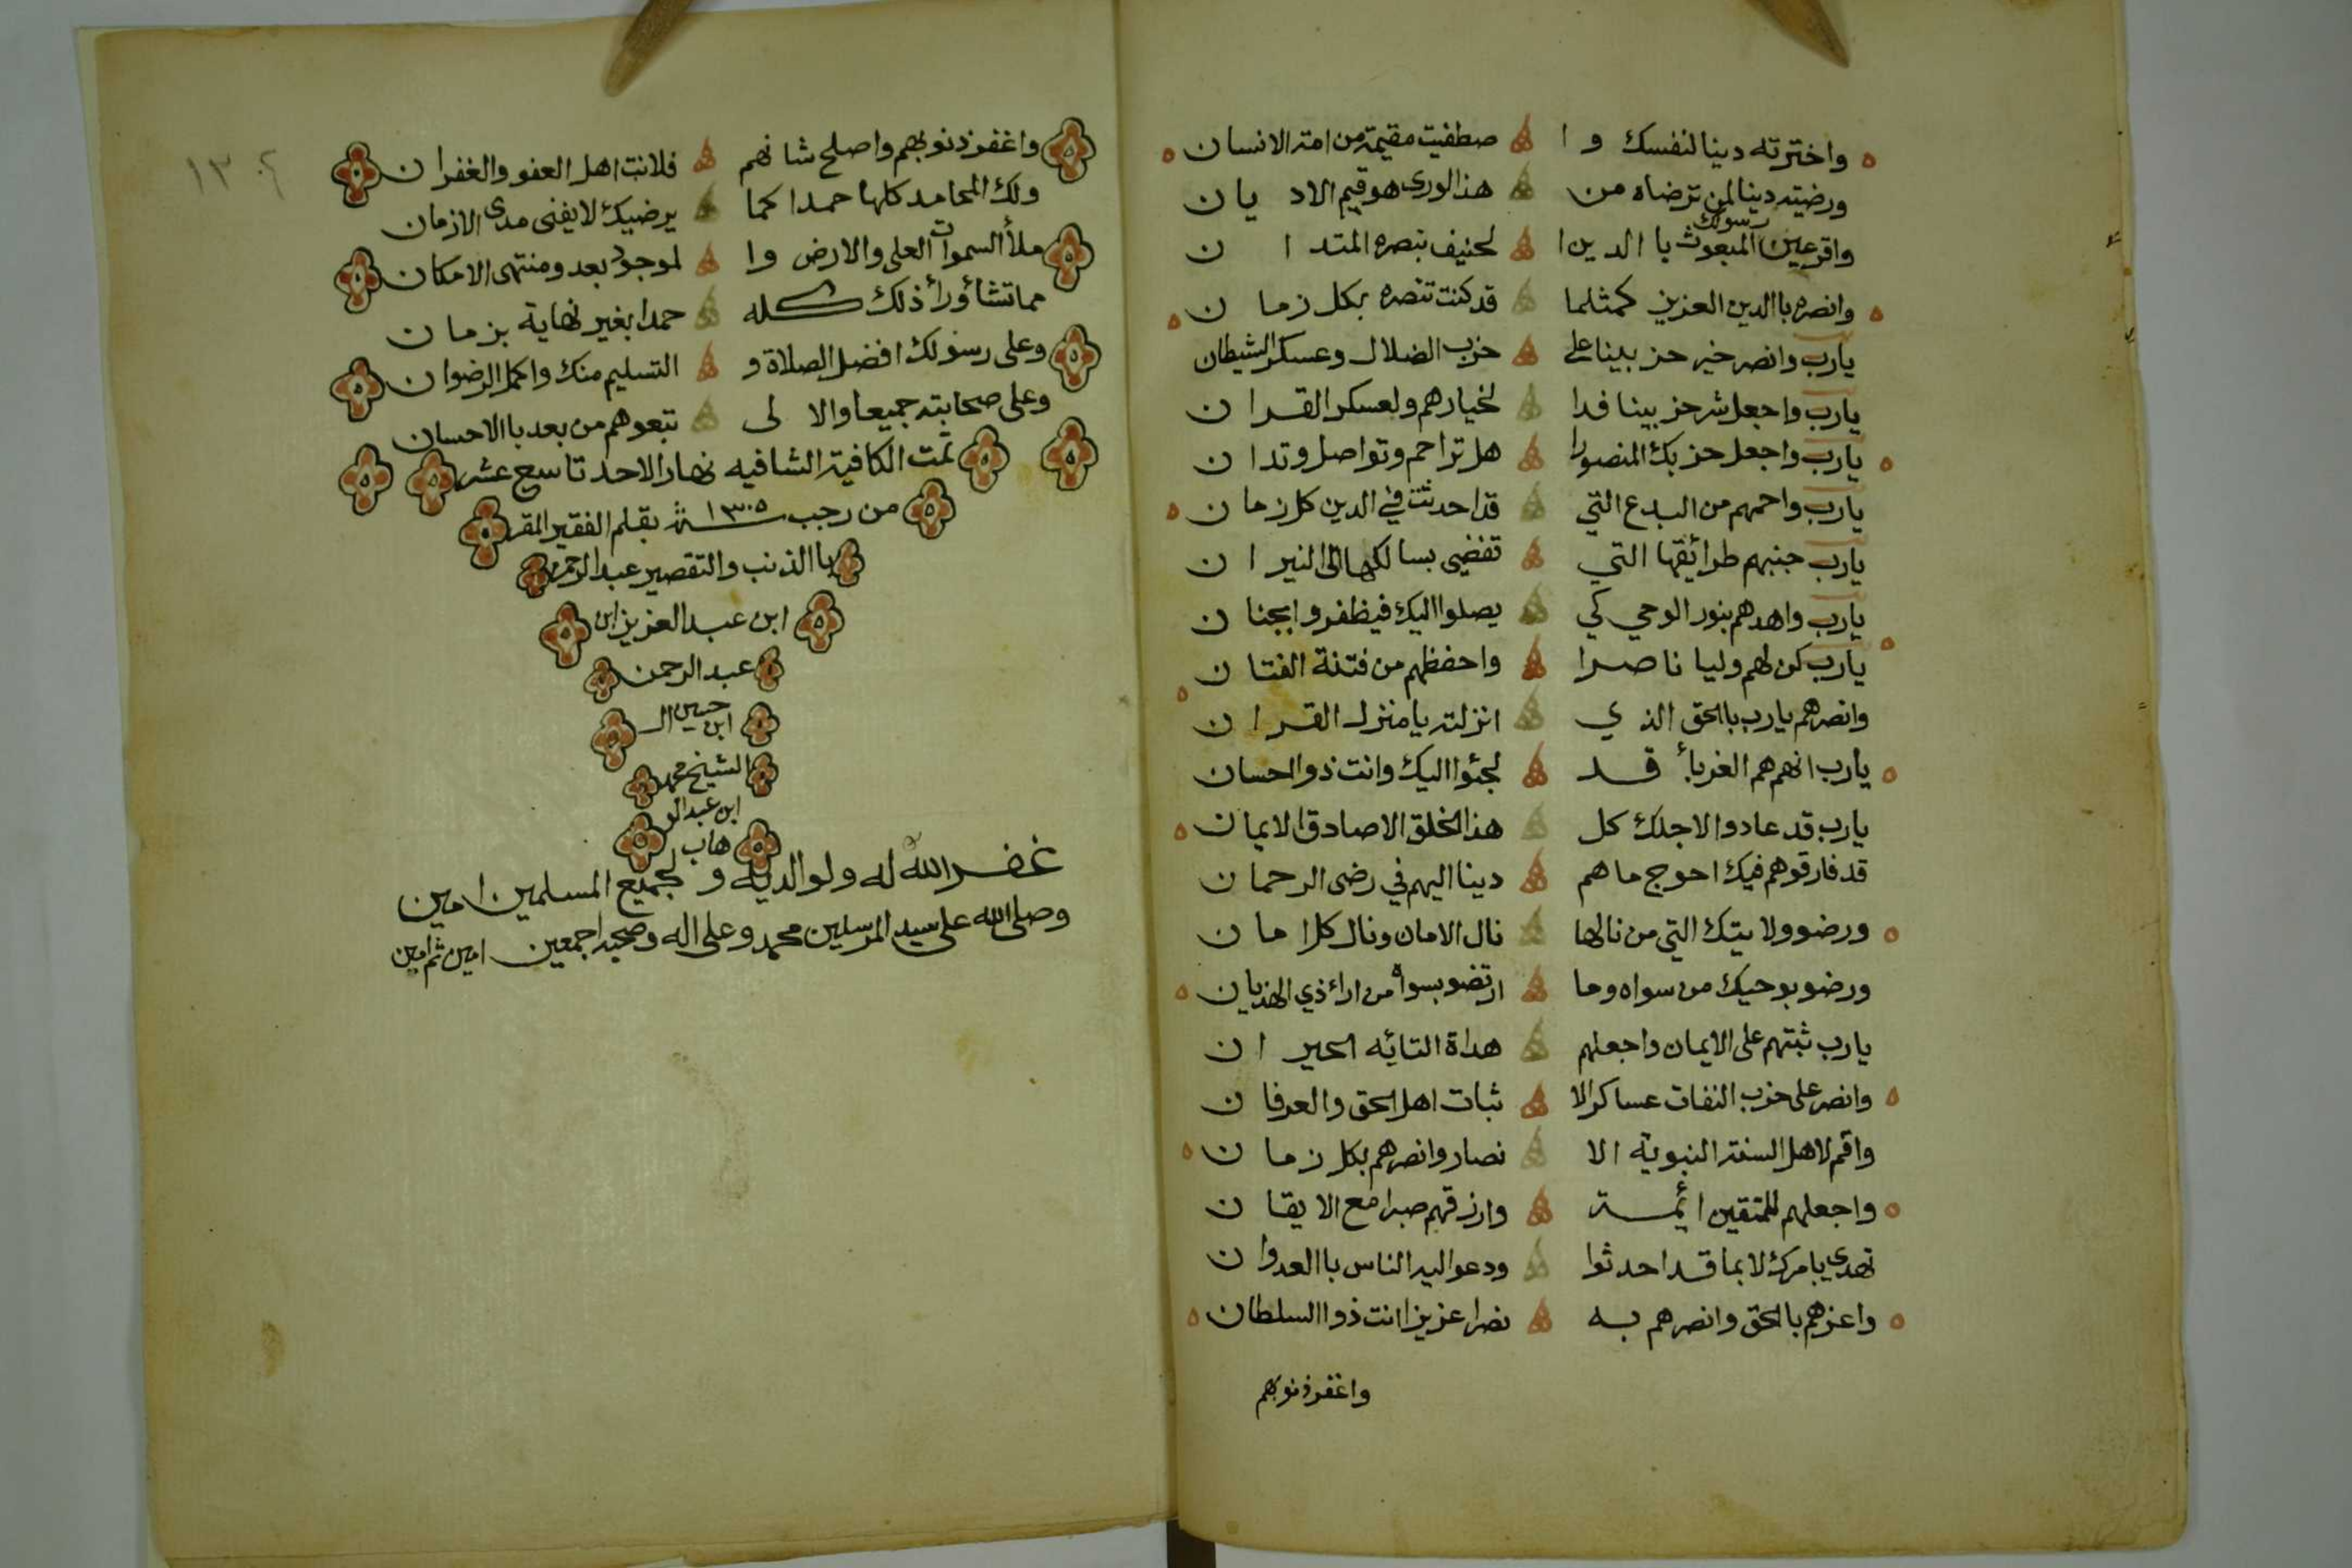 واخترته دينا لنفسك و ا صطفيت مقيمه من امة الانسان
ورضيته دينا لمن ترضاه من هذا الورى هو قيم الاد يان
واقر عين رسولك المبعوث با الدين ا لحنيف بنصره المتد ا ن
وانصره باالدين العزيز كمثلما قد كنت تنصره بكل زما ن
يارب وانصر خير حزبينا على حزب الضلال وعسكر الشيطان
يارب واجعل شر حزبينا فدا لخيارهم ولعسكر القرا ن
يارب واجعل حزبك المنصورا هل تراحم وتواصل وتدا ن
يارب واحمهم من البدع التي قد احدثت في الدين كل زما ن
يارب جنبهم طرائقها التي تفضي بسالكها الى النير ا ن
يارب واهدهم بنور الوحي كي يصلوا اليك فيظفروا بجنا ن
يارب كن لهم وليا ناصرا واحفظهم من فتنة الفتا ن
وانصرهم يارب باالحق الذ ي انزلته يا منزل القرا ن
يارب انهم هم الغربأ قد لجئوا اليك وانت ذو الحسان
يارب قد عادوا لاجلك كل هذا الخلق الا صادق الايما ن
قد فارقوهم فيك احوج ما هم دينا اليهم في رضى الرحما ن
ورضوو لايتك التي من نالها نال الامان ونال كل ا ما ن
ورضو بوحيك من سواه وما ارتضو بسواه من اراء ذي الهذيان
يارب ثبتهم على الايمان واجعلهم هداة التائه الحير ا ن
وانصر على حزب النفات عساكر الا ثبات اهل الحق والعرفا ن
واقم لاهل السنة النبوية الا نصار وانصرهم بكل زما ن
واجعلهم للمتقين ائمة وارزقهم صبرا مع الايقا ن
تهدي بامرك لا بما قد احدثوا ودعو اليه الناس باالعدوا ن
واعزهم بالحق وانصرهم به نصرا عزيزا انت ذوا السلطان
واغفر ذنوبهم
١٣٠٤
واغفر ذنوبهم واصلح شا نهم فلانت اهل العفو والغفرا ن
ولك المحامد كلها حمدا كما يرضيك لا يفنى مدى الازمان
ملأ السموات العلى والارض وا لموجود بعد ومنتهى الامكان
مما تشأ ورأ ذلك كله حمدا بغير نهاية بزما ن
وعلى رسولك افضل الصلاة و التسليم منك واكمل الرضوا ن
وعلى صحابته جميعا والا لى تبعوهم من بعد باالاحسان
تمت الكافية الشافيه نهار الاحد تاسع عشر
من رجب سنة ١٣٠٥ بقلم الفقير المقر
باالذنب والتقصير عبد الرحمن
ابن عبد العزيز ابن
عبد الرحمن
ابن حسين ال
الشيخ محمد
ابن عبد الو
هاب
غفر الله له ولوالديه و لجميع المسلمين امين
وصلى الله على سيد المرسلين محمد وعلى اله وصحبه اجمعين امين ثم امين